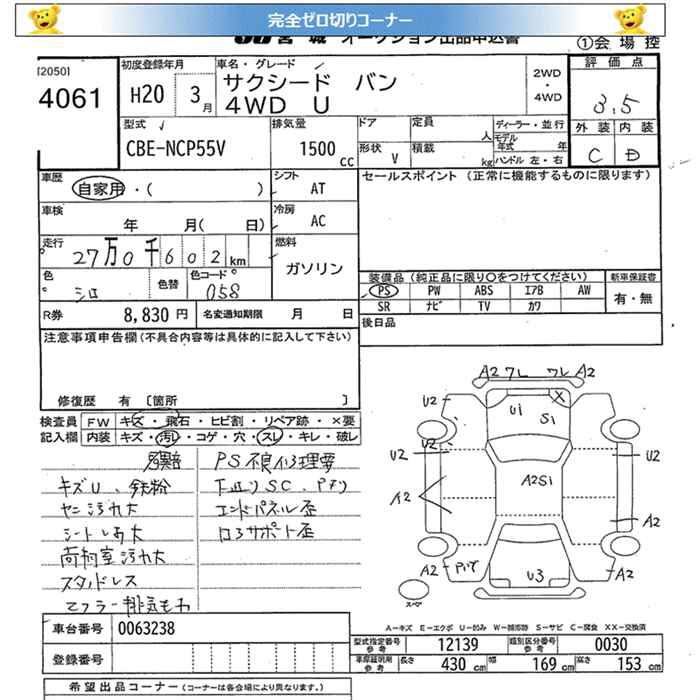 完全ゼロ切りコーナー
JU 宮 城 オークション出品申込書 ①会 場 控
[2050]
4061
初度登録年月 H20 3月
車名・グレード
サクシード バン
4WD U
2WD ・ 4WD
評価点 3.5
外装 内装
C D
型式 CBE-NCP55V
排気量 1500 cc
ドア 形状 V
定員 人
積載 kg
ディーラー・並行
モデル年式 年
ハンドル 左・右
車歴 自家用・( )
シフト AT
セールスポイント (正常に機能するものに限ります)
車検 年 月( 日)
冷房 AC
走行 27万0千602km
燃料 ガソリン
色 シロ 色替 色コード 058
装備品(純正品に限り○をつけてください) 新車保証書
PS PW ABS エアB AW 有・無
SR ナビ TV カワ
R券 8,830円 名変通知期限 月 日
後日品
注意事項申告欄(不具合内容等は具体的に記入して下さい)
修復歴 有 〔箇所 〕
検査員 FW キズ・飛石・ヒビ割・リペア跡・×要
記入欄 内装 キズ・汚れ・コゲ・穴・スレ・キレ・破レ
PS不良修理要
キズU、鉄粉 下廻りSC、Pアリ
ヤニ汚れ大 エンドパネル歪
シートしみ大 コアサポート歪
荷物室汚れ大
スタッドレス
マフラー排気もれ
A2 ワレ ワレ A2
U2 U1 S1 X
U2 U2 U2
A2 A2S1
A2
A2 Pアナ U3 A2
スペア
A-キズ E-エクボ U-凹み W-補修跡 S-サビ C-腐食 XX-交換済
車台番号 0063238
登録番号
型式指定番号 参考 12139 類別区分番号 参考 0030
車庫証明用 参考 長さ 430 cm 幅 169 cm 高さ 153 cm
希望出品コーナー (コーナーは各会場により異なります。)